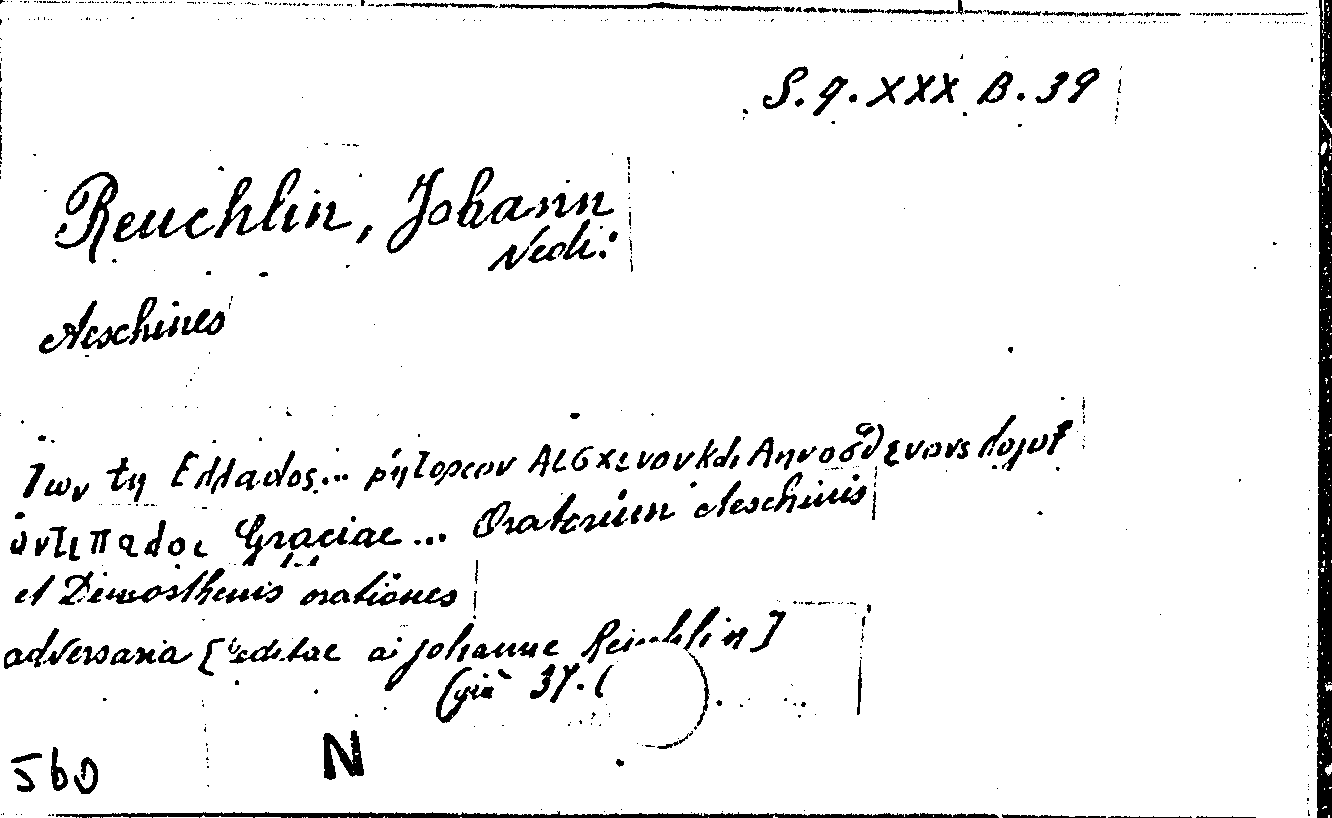 S.q.XXX B.39
Reuchlin, Johann
Vedi:
Aeschines
Των τη Ελλαδος... ρητορων Αισχινου και Δημοσθενους λογοι
αντιπαλοι Graeciae... Oratorum Aeschinis
et Demosthenis orationes
adversaria [editae a Johanne Reuchlin]
(già 37.
560
N